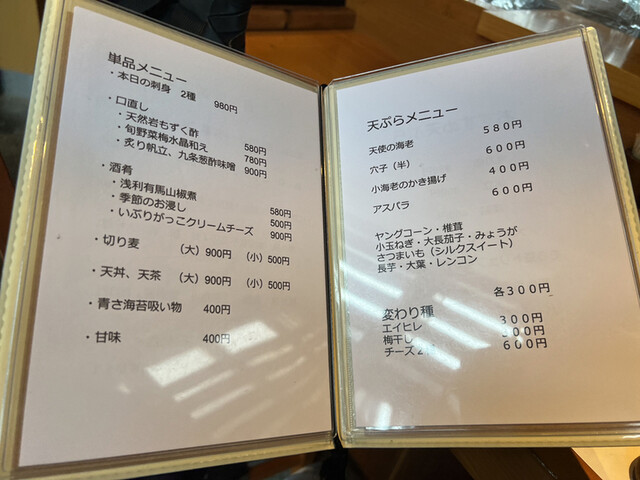 単品メニュー
・本日の刺身 2種 980円
・口直し
・天然岩もずく酢 580円
・旬野菜梅水晶和え 780円
・炙り帆立、九条葱酢味噌 900円
・酒肴
・浅利有馬山椒煮 580円
・季節のお浸し 500円
・いぶりがっこクリームチーズ 900円
・切り麦 (大) 900円 (小) 500円
・天丼、天茶 (大) 900円 (小) 500円
・青さ海苔吸い物 400円
・甘味 400円
天ぷらメニュー
天使の海老 580円
穴子（半） 600円
小海老のかき揚げ 400円
アスパラ 600円
ヤングコーン・椎茸
小玉ねぎ・大長茄子・みょうが
さつまいも（シルクスイート）
長芋・大葉・レンコン
各300円
変わり種
エイヒレ 300円
梅干し 300円
チーズ 600円